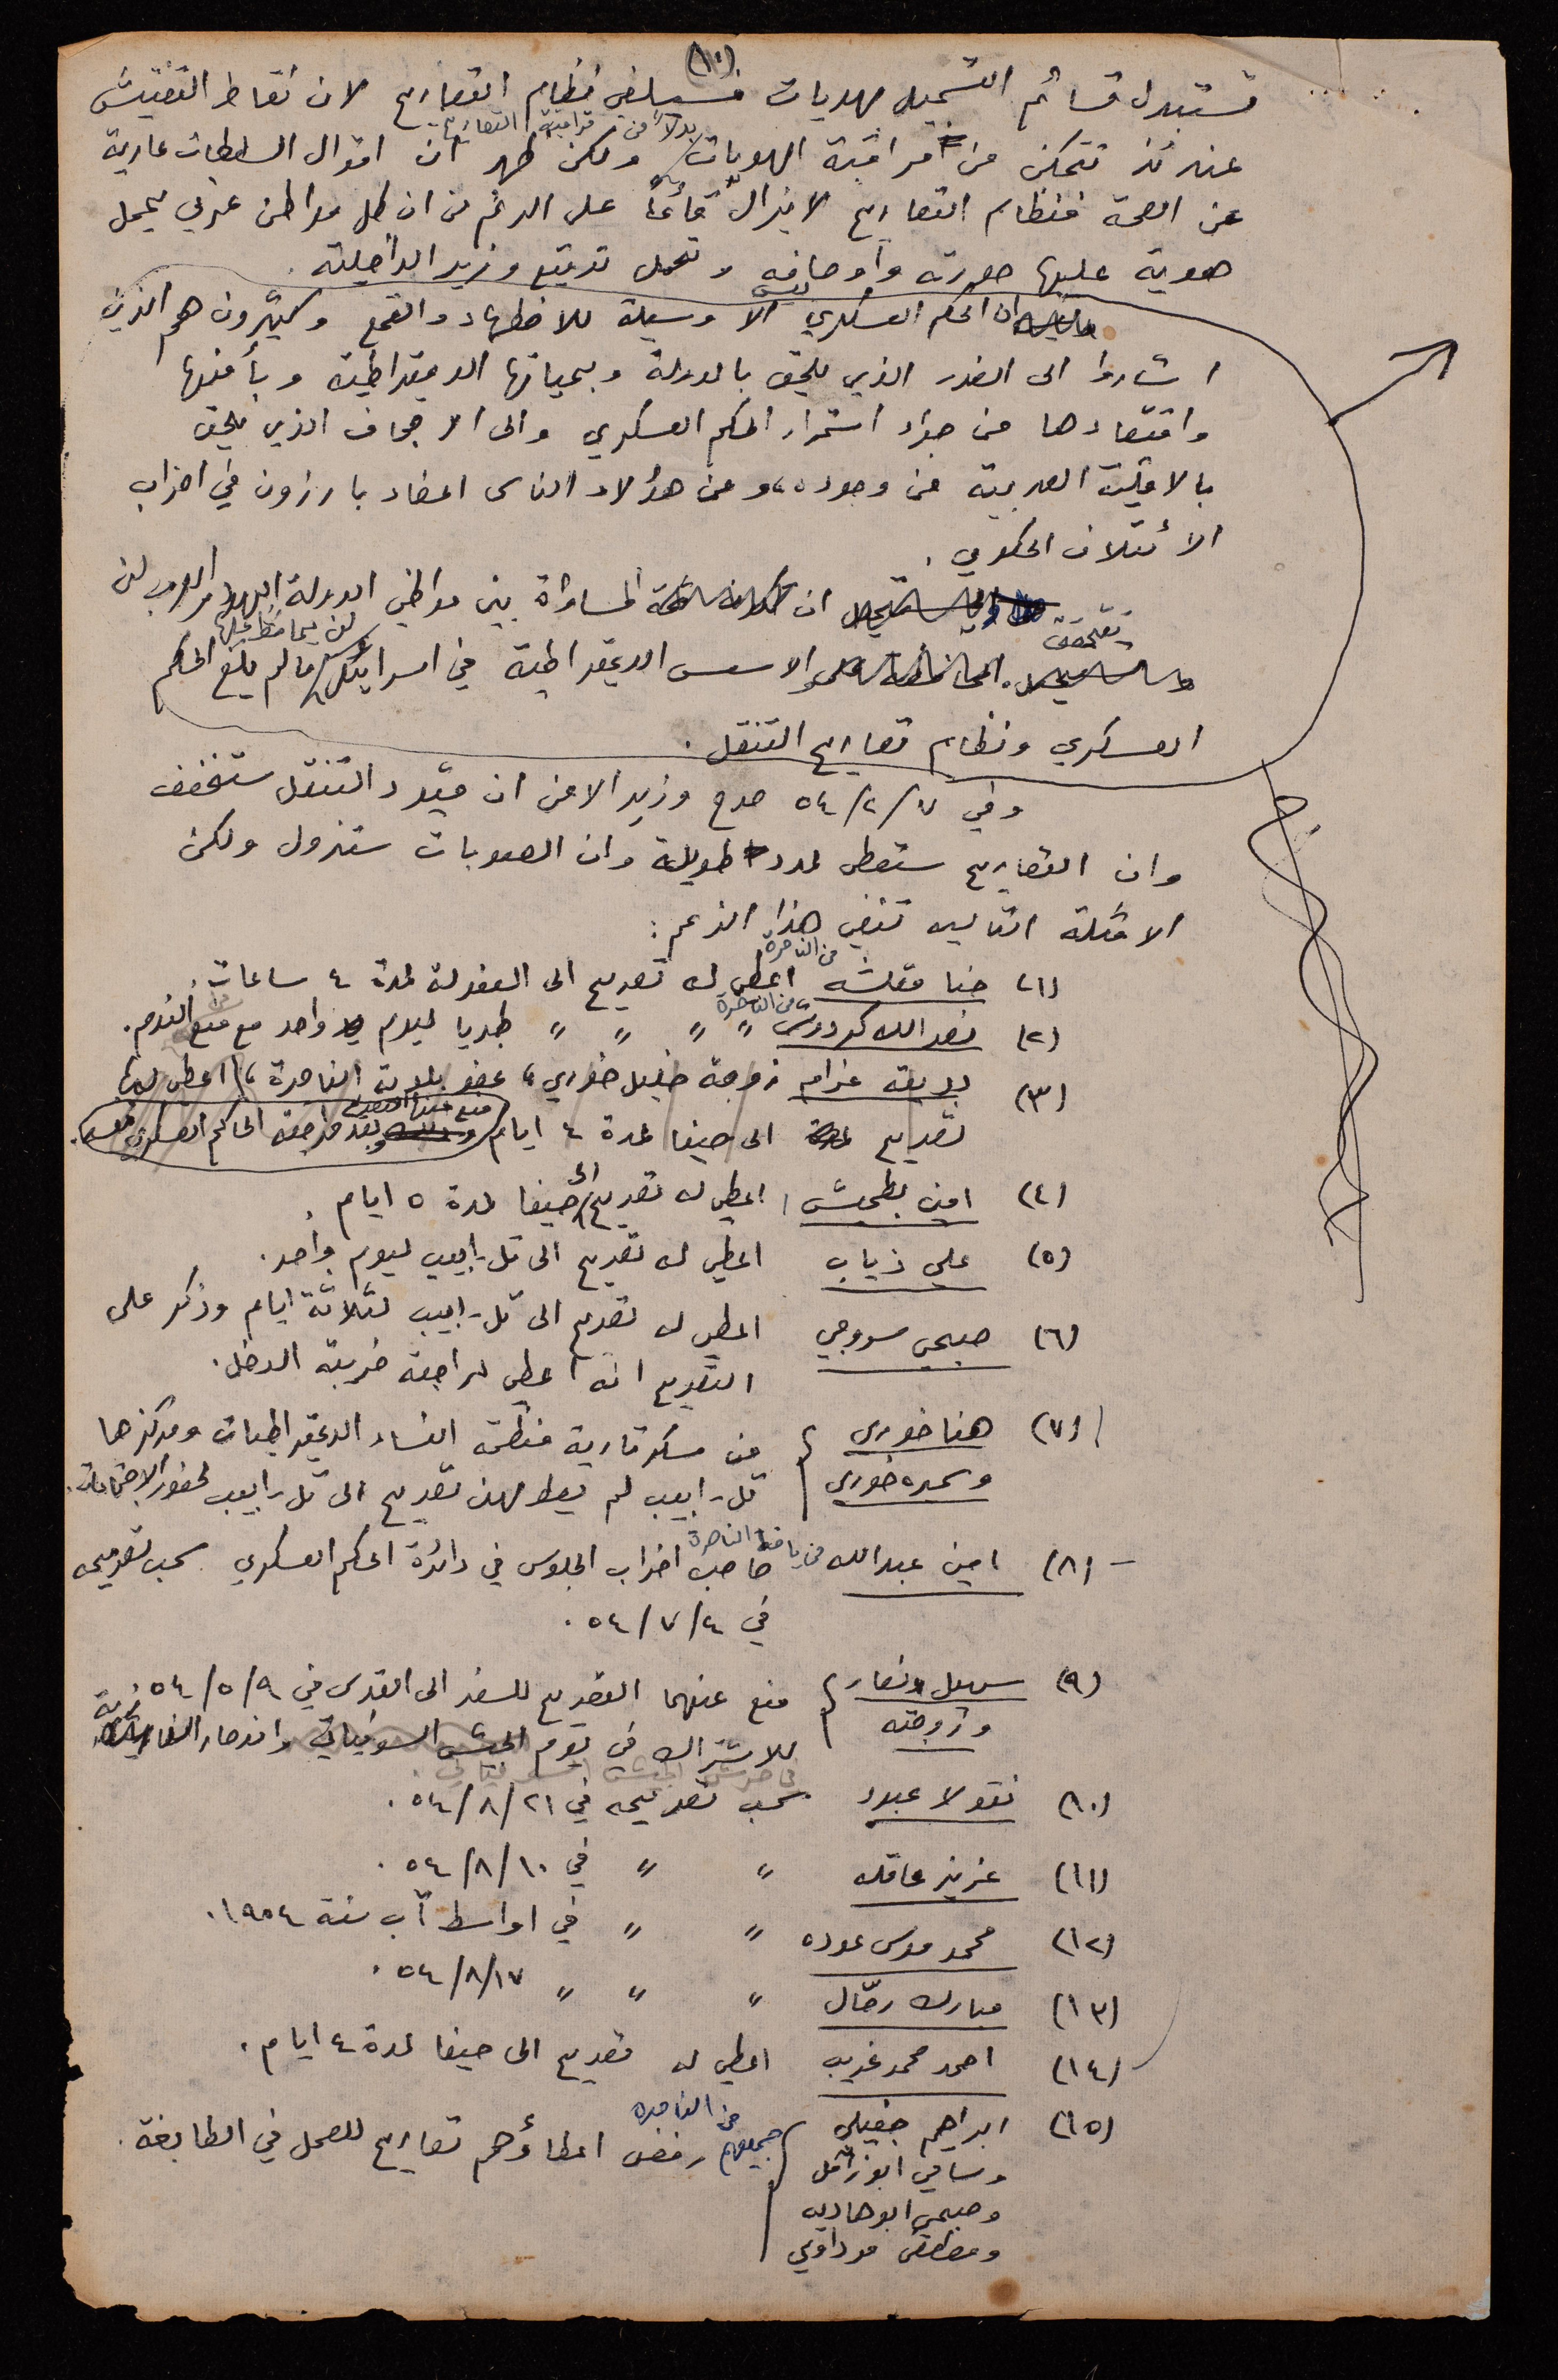 (١٠)
تستبدل قسائم التسجيل بهويات فسيلغى نظام التصاريح لان نقاط التفتيش
عندئذ تتمكن من مراقبة الهويات بدلاً من مراقبة التصاريح ولكن ظهر ان اقوال السلطات عارية
عن الصحة فنظام التصاريح لا يزال قائماً على الرغم من ان كل مواطن عربي يحمل
هوية عليها صورته وأوصافه وتحمل توقيع وزير الداخلية.
ان الحكم العسكري ليس الا وسيلة للاضطهاد والقمع وكثيرون هم الذين
اشاروا الى الضرر الذي يلحق بالدولة وبحياتها الديمقراطية وبأمنها
واقتصادها من جراء استمرار الحكم العسكري والى الاجحاف الذي يلحق
بالاقلية العربية من وجوده، ومن هؤلاء الناس اعضاء بارزون في احزاب
الائتلاف الحكومي.
ان المساواة بين مواطني الدولة اليهود والعرب لن
تتحقق والاسس الديمقراطية في اسرائيل لن يحافظ عليها ما لم يلغ الحكم
العسكري ونظام تصاريح التنقل.
وفي ٥٤/٢/٧ صرح وزير الامن ان قيود التنقل ستخفف
وان التصاريح ستعطى لمدد طويلة وان الصعوبات ستزول ولكن
الامثلة التالية تنفي هذا الزعم:
(١) حنا مقلشه من الناصرة اعطي له تصريح الى العفولة لمدة ٤ ساعات.
(٢) نصرالله كردوش من الناصرة " " " طبريا ليوم واحد مع منع النوم.
(٣) بديعه عزام زوجة خليل خوري، عضو بلدية الناصرة، اعطي لها
تصريح الى حيفا لمدة ٤ ايام وبعد مراجعة الحاكم العسكري
(٤) امين بطحيش اعطي له تصريح الى حيفا لمدة ٥ ايام.
(٥) علي ذياب اعطي له تصريح الى تل-ابيب ليوم واحد.
(٦) صبحي سروجي اعطي له تصريح الى تل-ابيب لثلاثة ايام وذكر على
التصريح انه اعطي لمراجعة ضريبة الدخل.
(٧) هنا خوري من سكرتارية منظمة النساء الديمقراطيات ومركزها
وسميره خوري تل-ابيب لم يعط لهن تصريح الى تل-ابيب لحضور الاجتماعات.
(٨) امين عبدالله من يافة الناصرة صاحب اضراب الجلوس في دائرة الحكم العسكري سحب تصريحه
في ٥٤/٧/٤.
(٩) سهيل نصار منع عنهما التصريح للسفر الى القدس في ٥٤/٥/٩
وزوجته للاشتراك في يوم الجيش السوفياتي واندحار النازية
في حرش الجيش السوفياتي.
(١٠) نقولا عبود سحب تصريحه في ٥٤/٨/٢١.
(١١) عزيز عاقله " " في ٥٤/٨/١٠.
(١٢) محمد موسى عوده " " في اواسط آب سنة ١٩٥٤.
(١٣) مبارك رحّال " " " ٥٤/٨/١٧.
(١٤) احمد محمد غريب اعطي له تصريح الى حيفا لمدة ٤ ايام.
(١٥) ابراهيم جميعهم من الناصره رفض اعطاؤهم تصاريح للعمل في الطابغة.
وسامي ابو
وصبحي ابو هاديه
ومصطفى مرداوي